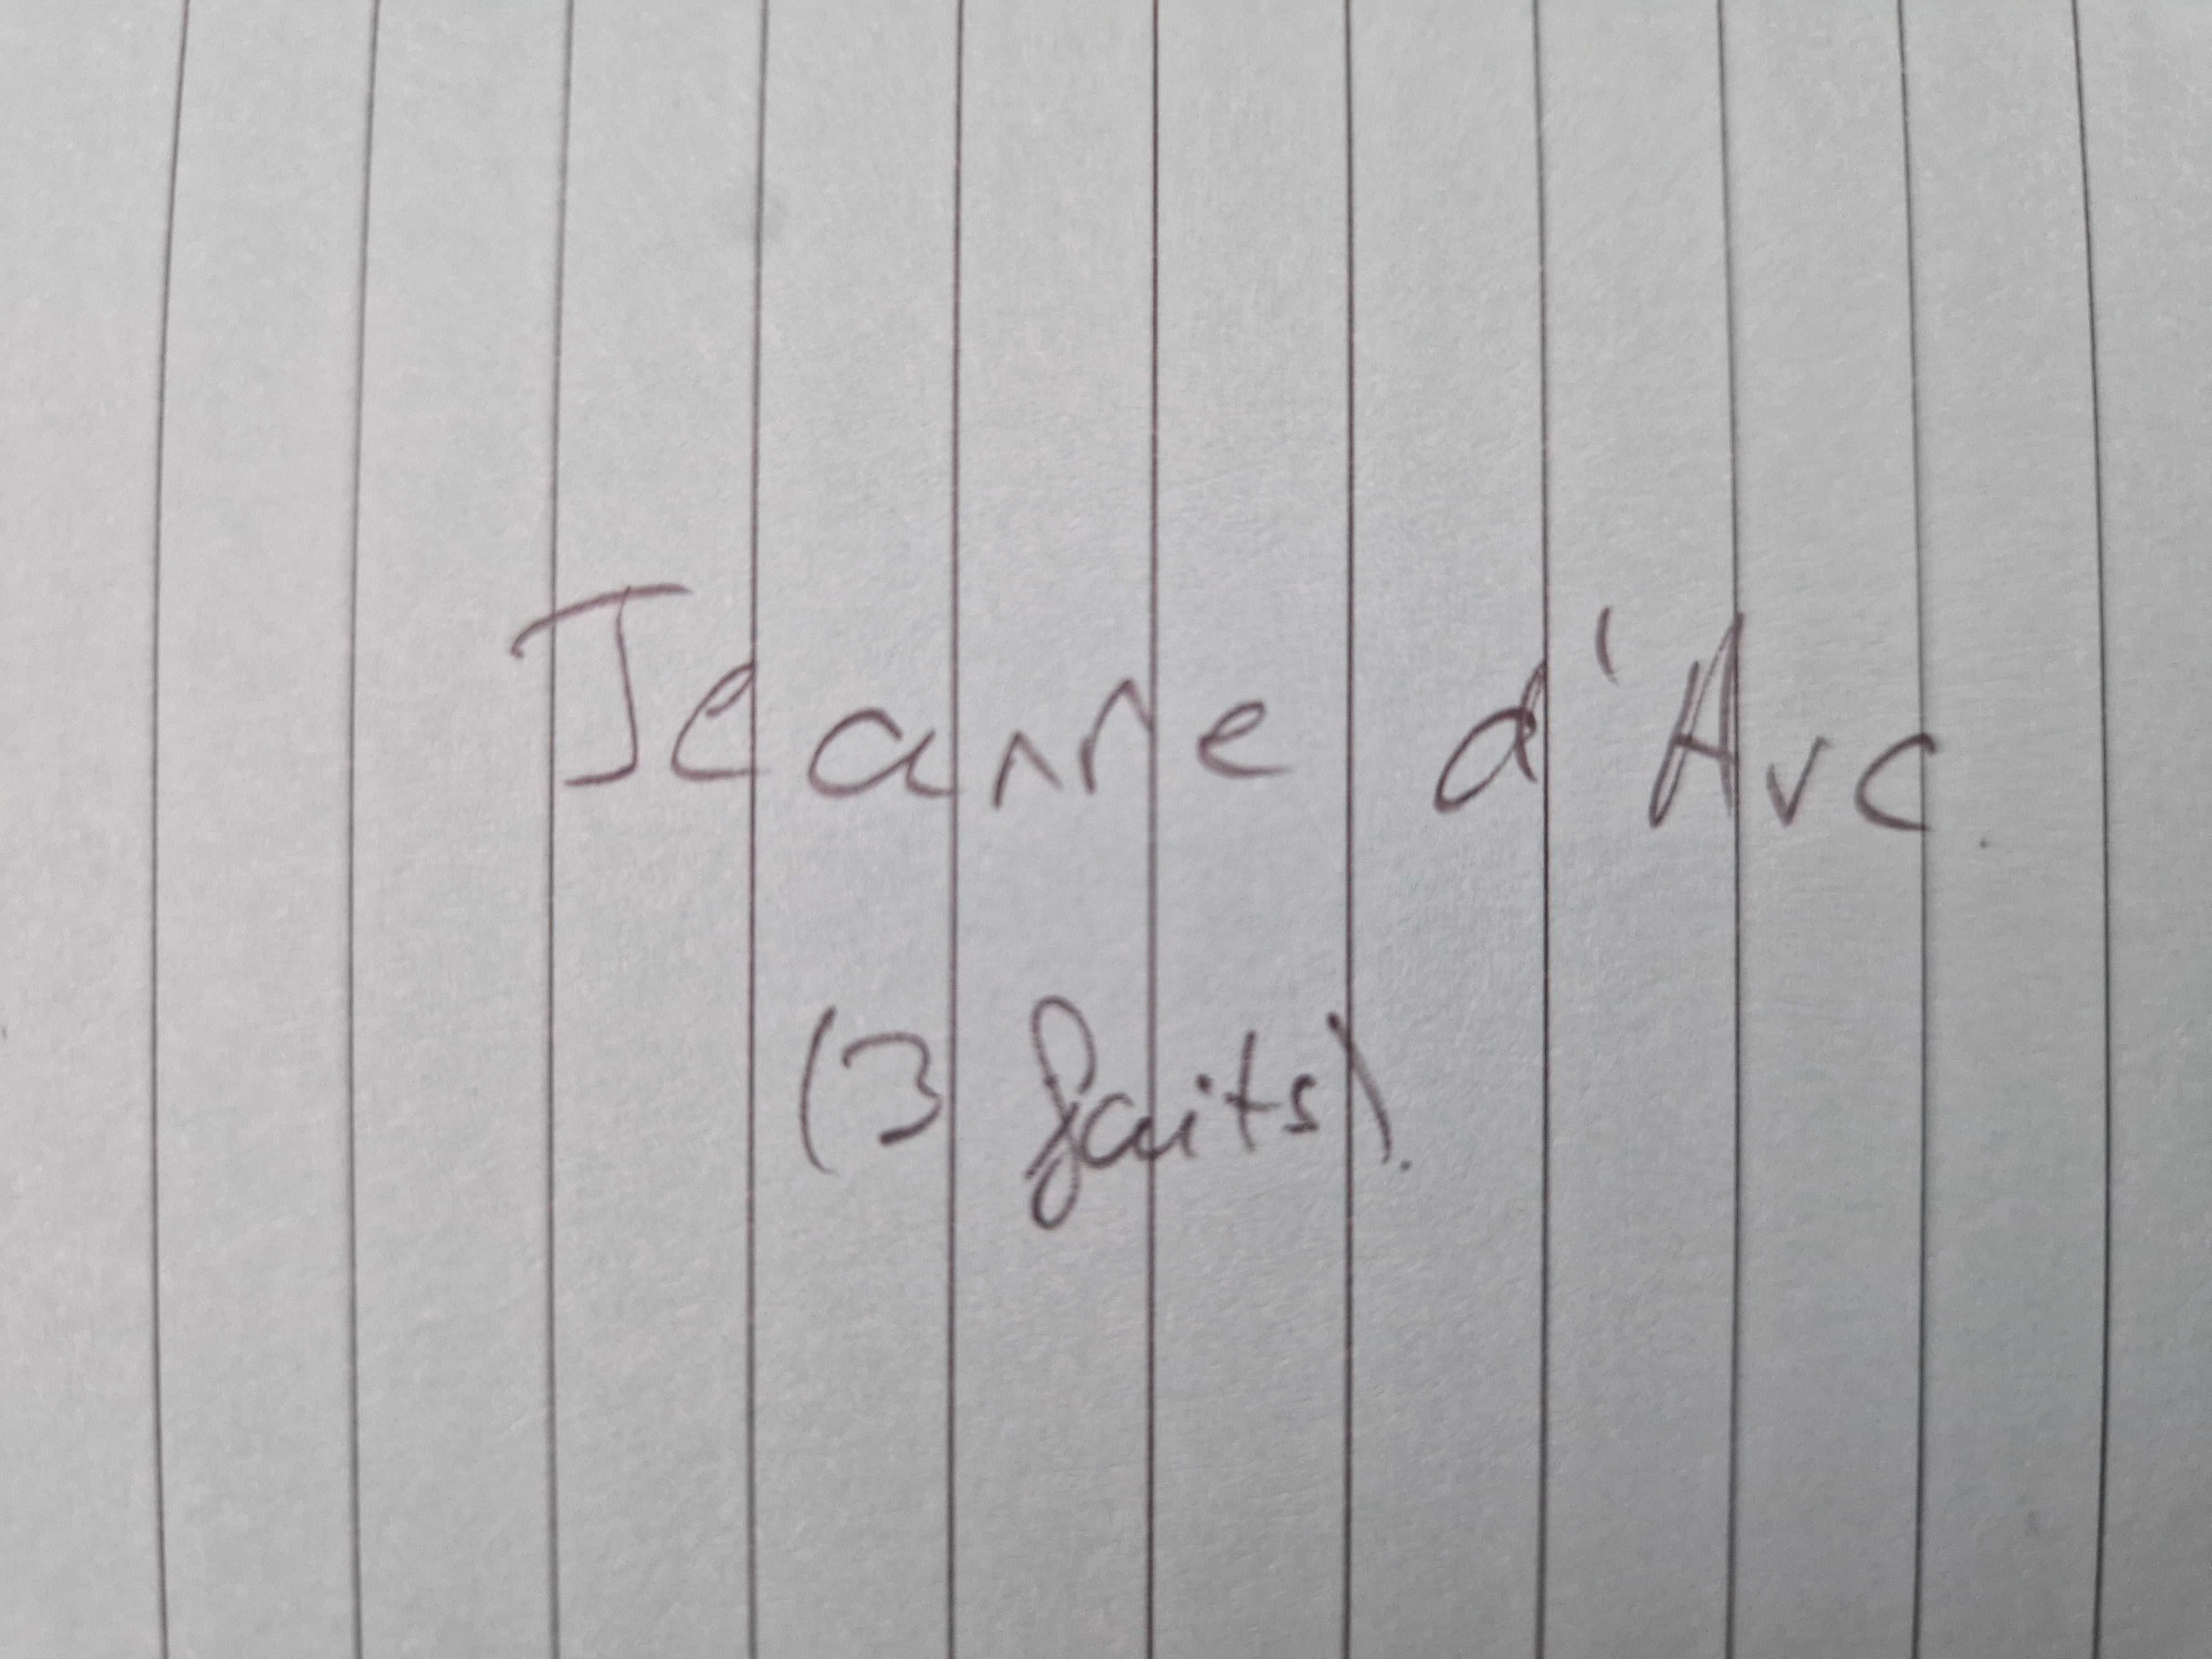 Jeanne d'Arc.
(3 faits).